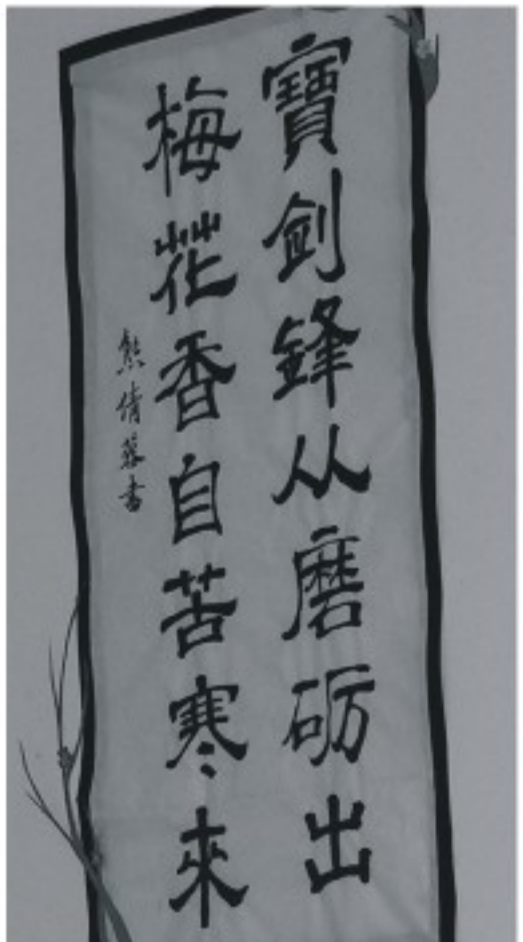 寶劍鋒从磨砺出
梅花香自苦寒來
熊倩蓉書